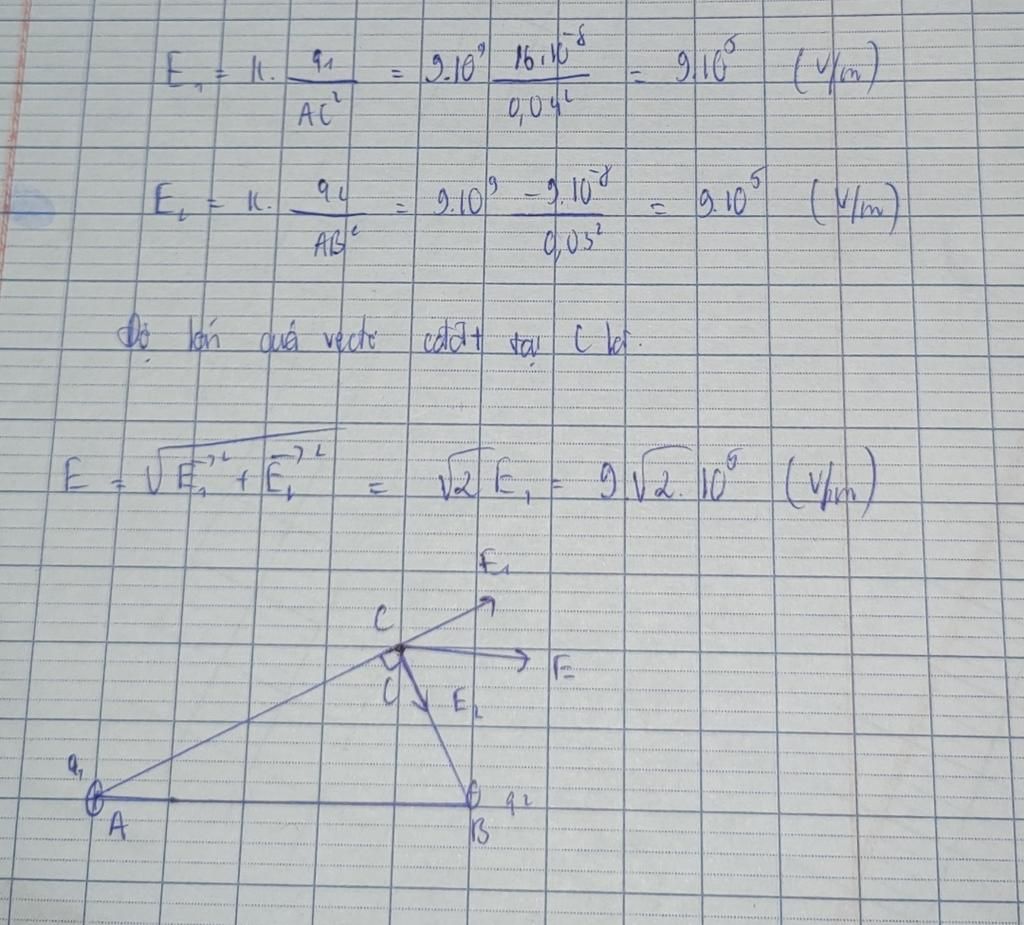 E₁ = K. q₁/AC² = 9.10⁹ 16.10⁻⁸/0,04² = 9.10⁵ (V/m)
E₂ = K. q₂/AB² = 9.10⁹ -9.10⁻⁸/0,03² = 9.10⁵ (V/m)
Độ lớn quả vectơ cđđt tại C là.
E = √E₁² + E₂² = √2 E₁ = 9√2. 10⁵ (V/m)
E₁
C
E
C
E₂
q₁
A
q₂
B